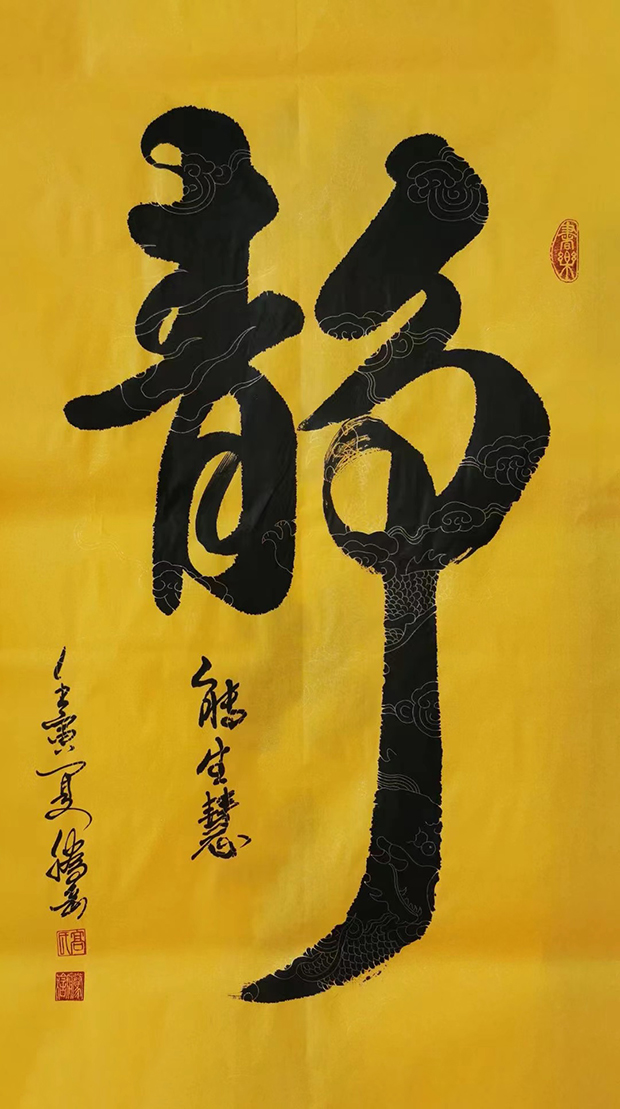 静
能生慧
壬寅夏腾岳
書樂